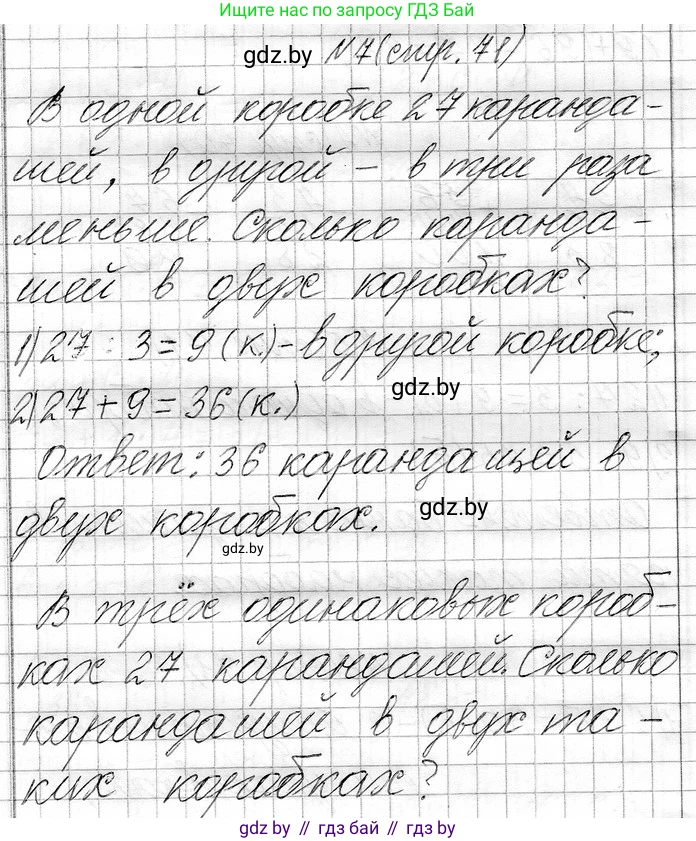 Ищите нас по запросу ГДЗ Бай
gdz.by №7(стр. 71)
В одной коробке 27 каранда-
шей, в другой – в три раза
меньше. Сколько каранда-
шей в двух коробках?
1) 27 : 3 = 9 (к.) – в другой коробке;
2) 27 + 9 = 36 (к.)
gdz.by
Ответ: 36 карандашей в
двух коробках.
gdz.by
gdz.by
В трёх одинаковых короб-
ках 27 карандашей. Сколько
карандашей в двух та-
ких коробках?
gdz.by // гдз бай // гдз.by